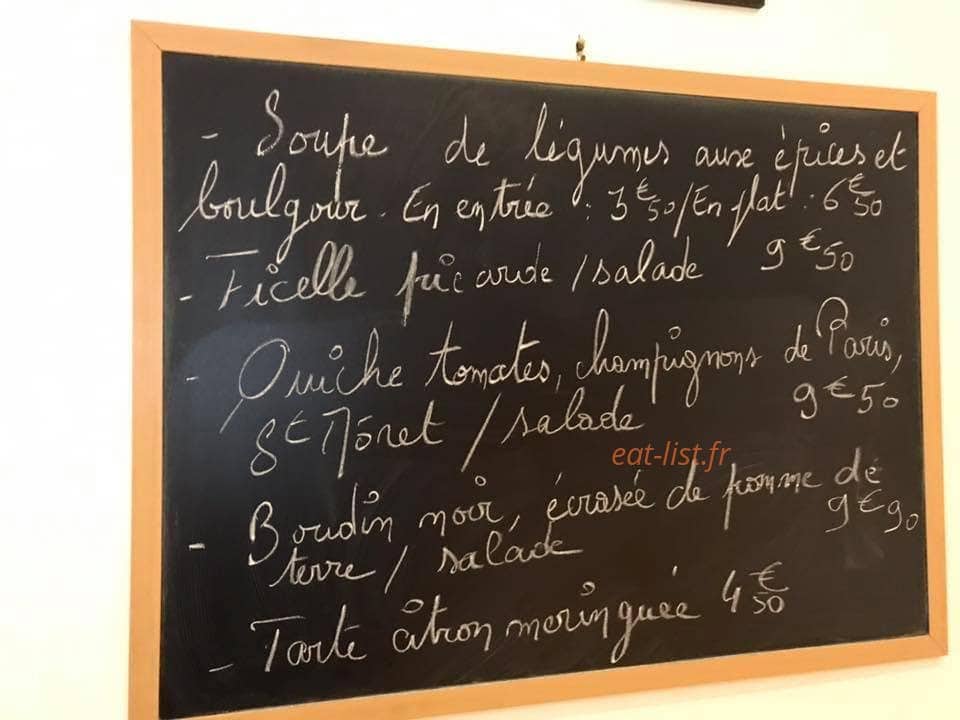 - Soupe de légumes aux épices et
boulgour. En entrée : 3€50/En plat : 6€50
- Ficelle picarde / salade 9€50
- Quiche tomates, champignons de Paris,
St Môret / salade 9€50
eat-list.fr
- Boudin noir, écrasée de pomme de
terre / salade 9€90
- Tarte citron meringuée 4€50